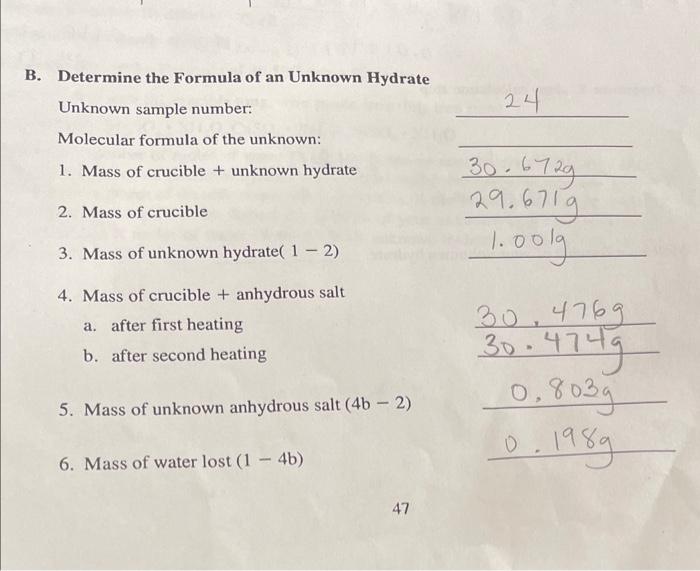 B. Determine the Formula of an Unknown Hydrate
Unknown sample number: 24
Molecular formula of the unknown:
1. Mass of crucible + unknown hydrate 30.672g
2. Mass of crucible 29.671g
3. Mass of unknown hydrate( 1 – 2) 1.001g
4. Mass of crucible + anhydrous salt
a. after first heating 30.476g
b. after second heating 30.474g
5. Mass of unknown anhydrous salt (4b – 2) 0.803g
6. Mass of water lost (1 – 4b) 0.198g
47